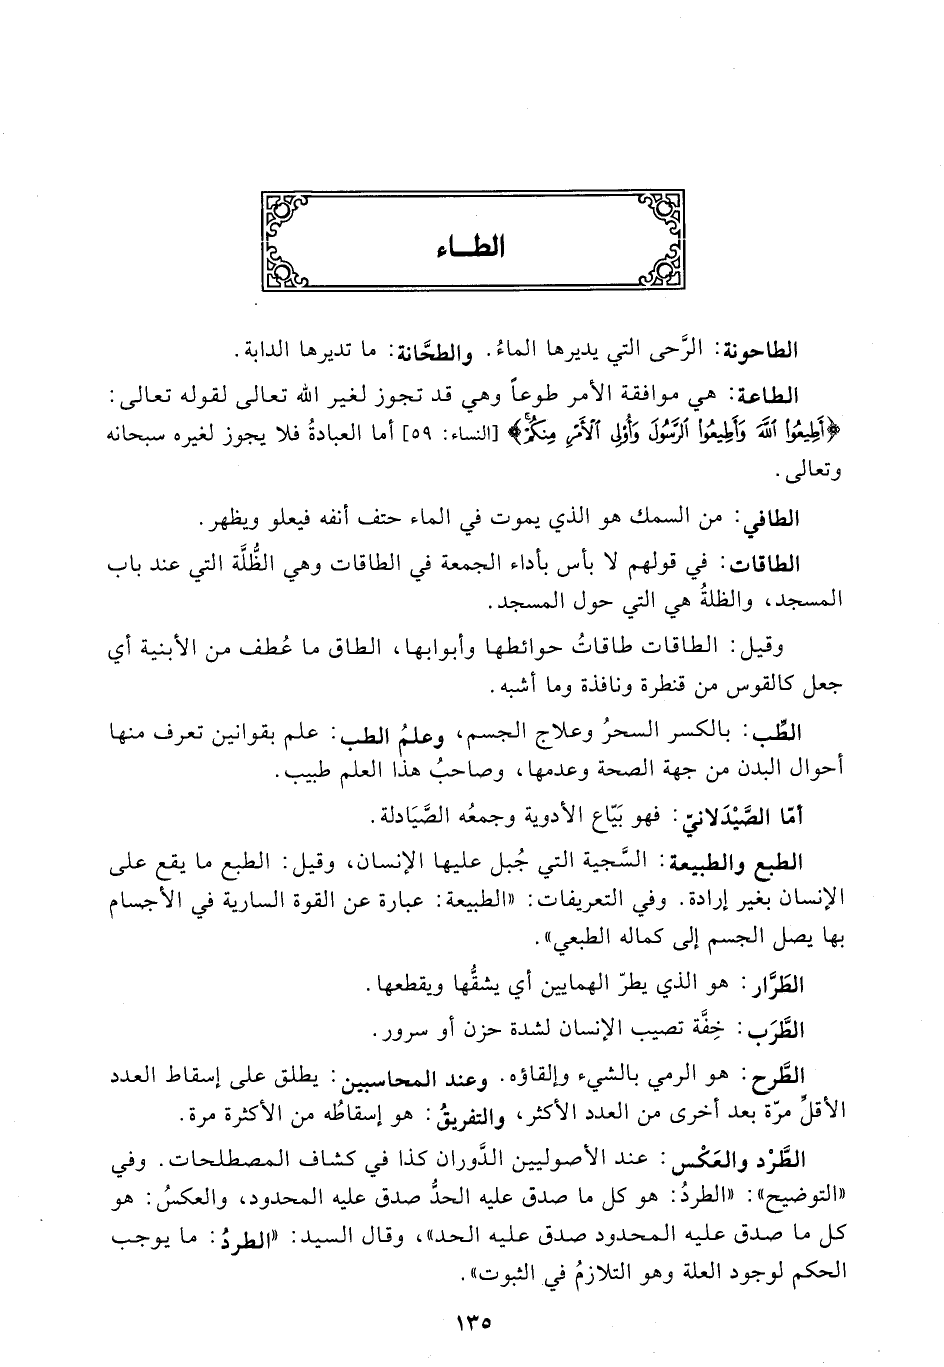 الطـــاء
الطاحونة: الرَّحى التي يديرها الماءُ. والطحَّانة: ما تديرها الدابة.
الطاعة: هي موافقة الأمر طوعاً وهي قد تجوز لغير الله تعالى لقوله تعالى:
﴿أَطِيعُوا۟ ٱللَّهَ وَأَطِيعُوا۟ ٱلرَّسُولَ وَأُو۟لِى ٱلْأَمْرِ مِنكُمْ﴾ [النساء: ٥٩] أما العبادةُ فلا يجوز لغيره سبحانه
وتعالى.
الطافي: من السمك هو الذي يموت في الماء حتف أنفه فيعلو ويظهر.
الطاقات: في قولهم لا بأس بأداء الجمعة في الطاقات وهي الظُّلَّة التي عند باب
المسجد، والظلةُ هي التي حول المسجد.
وقيل: الطاقات طاقاتُ حوائطها وأبوابها، الطاق ما عُطف من الأبنية أي
جعل كالقوس من قنطرة ونافذة وما أشبه.
الطِّب: بالكسر السحرُ وعلاج الجسم، وعلمُ الطب: علم بقوانين تعرف منها
أحوال البدن من جهة الصحة وعدمها، وصاحبُ هذا العلم طبيب.
أمّا الصَّيْدَلانيّ: فهو بَيّاع الأدوية وجمعُه الصَّيَادلة.
الطبع والطبيعة: السَّجية التي جُبل عليها الإنسان، وقيل: الطبع ما يقع على
الإنسان بغير إرادة. وفي التعريفات: «الطبيعة: عبارة عن القوة السارية في الأجسام
بها يصل الجسم إلى كماله الطبعي».
الطَرَّار: هو الذي يطرّ الهمايين أي يشقُّها ويقطعها.
الطَّرَب: خِفَّة تصيب الإنسان لشدة حزن أو سرور.
الطَّرح: هو الرمي بالشيء وإلقاؤه. وعند المحاسبين: يطلق على إسقاط العدد
الأقلِّ مرّة بعد أخرى من العدد الأكثر، والتفريقُ: هو إسقاطُه من الأكثرة مرة.
الطَّرْد والعَكْس: عند الأصوليين الدَّوران كذا في كشاف المصطلحات. وفي
«التوضيح»: «الطردُ: هو كل ما صدق عليه الحدُّ صدق عليه المحدود، والعكسُ: هو
كل ما صدق عليه المحدود صدق عليه الحد»، وقال السيد: «الطردُ: ما يوجب
الحكم لوجود العلة وهو التلازمُ في الثبوت».
١٣٥